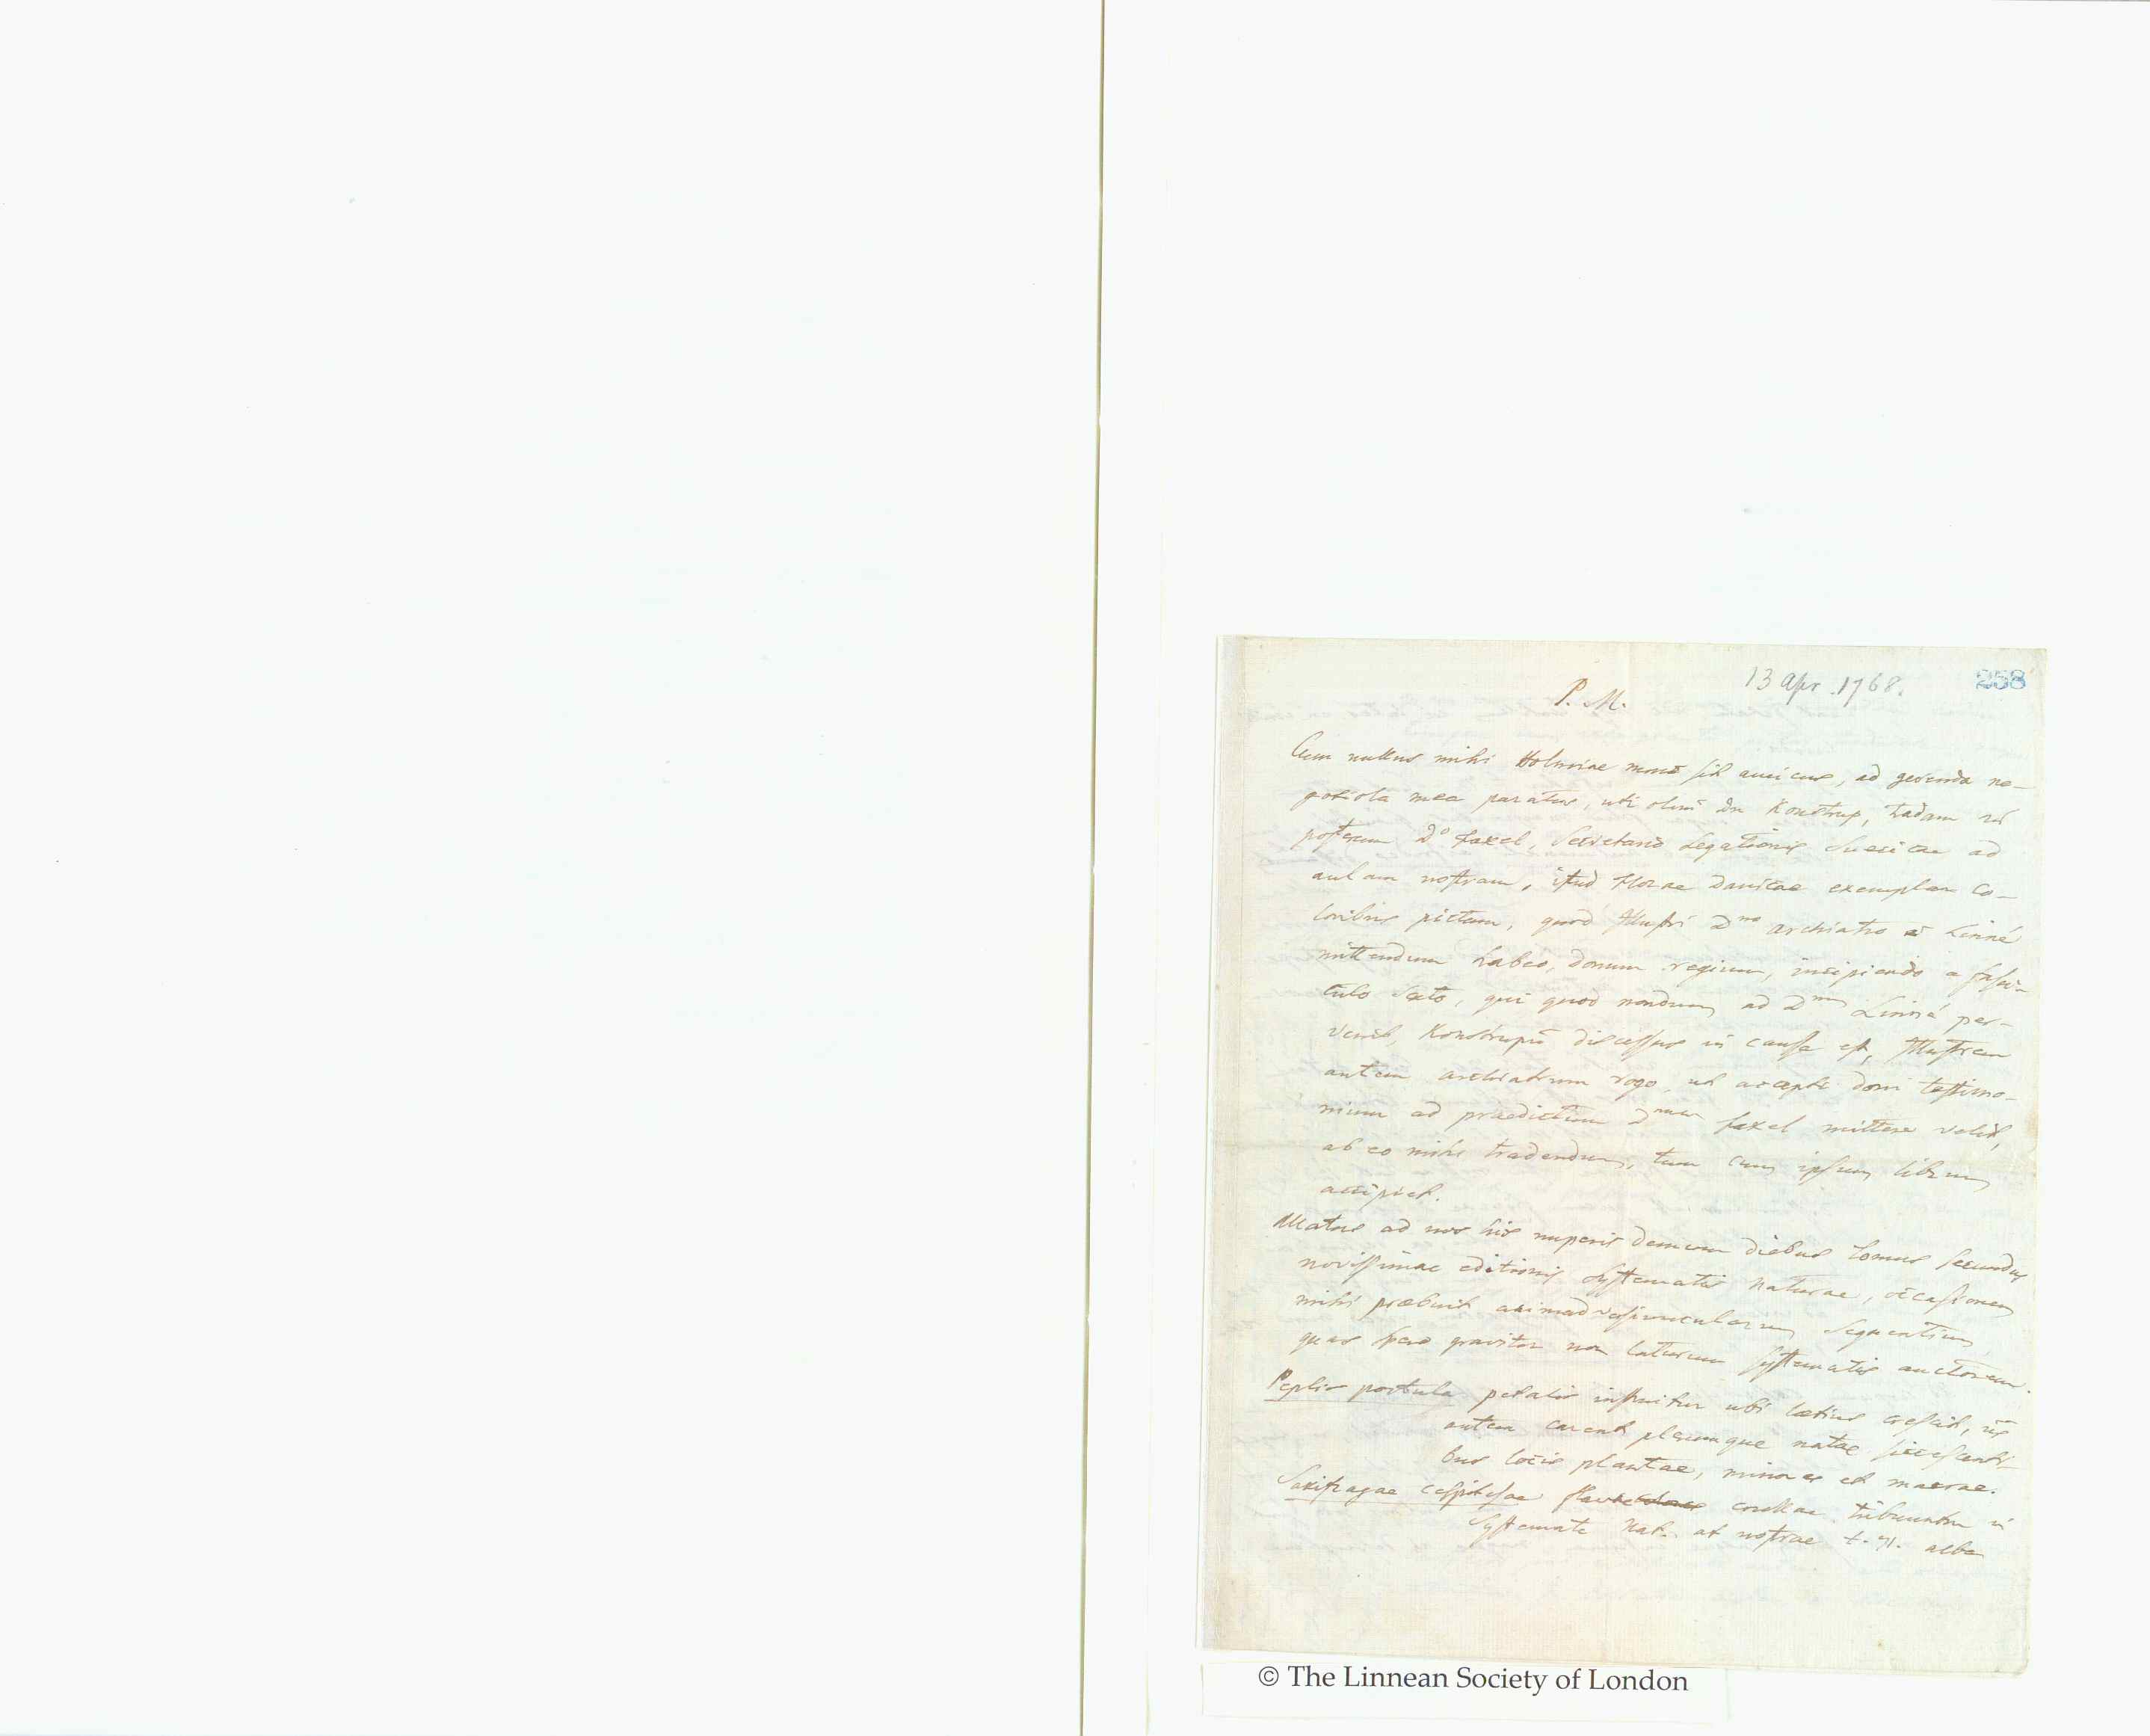 13 Apr. 1768.
258
P. M.
Cum nullus mihi Holmiae sit amicus, ad gerenda ne-
gotiola mea paratus, uti olim Dn Konstrup, tradam
posterum Do Faxel, Secretario Legationis Suecicae ad
aulam nostram, istud Florae Danicae exemplar co-
loribus pictum, quod Illustri Dno archiatro a Linné
mittendum habeo, donum regium, incipiendo a fasci-
culo sexto, qui quod nondum ad Dnm Linné per-
venit, Konstrupii discessus in causa est, Illustrem
autem archiatrum rogo, ut accepti doni testimo-
nium ad praedictum Dnum Faxel mittere velit,
ab eo mihi tradendum, tum cum ipsum librum
accipiet.
Allatus ad nos his nuperis demum diebus tomus secundus
novissimae editionis Systematis Naturae, occasionem
mihi praebuit animadversiuncularum sequentium
quas spero graviter non laturum systematis auctorem.
Peplis portula petalis instruitur ubi laetius crescit, iis
autem carent plerumque natae siccescenti-
bus locis plantae, minores et macrae.
Saxifragae cespitosae corollae tribuuntur in
Systemate Nat. at nostrae t. 71. albae
© The Linnean Society of London